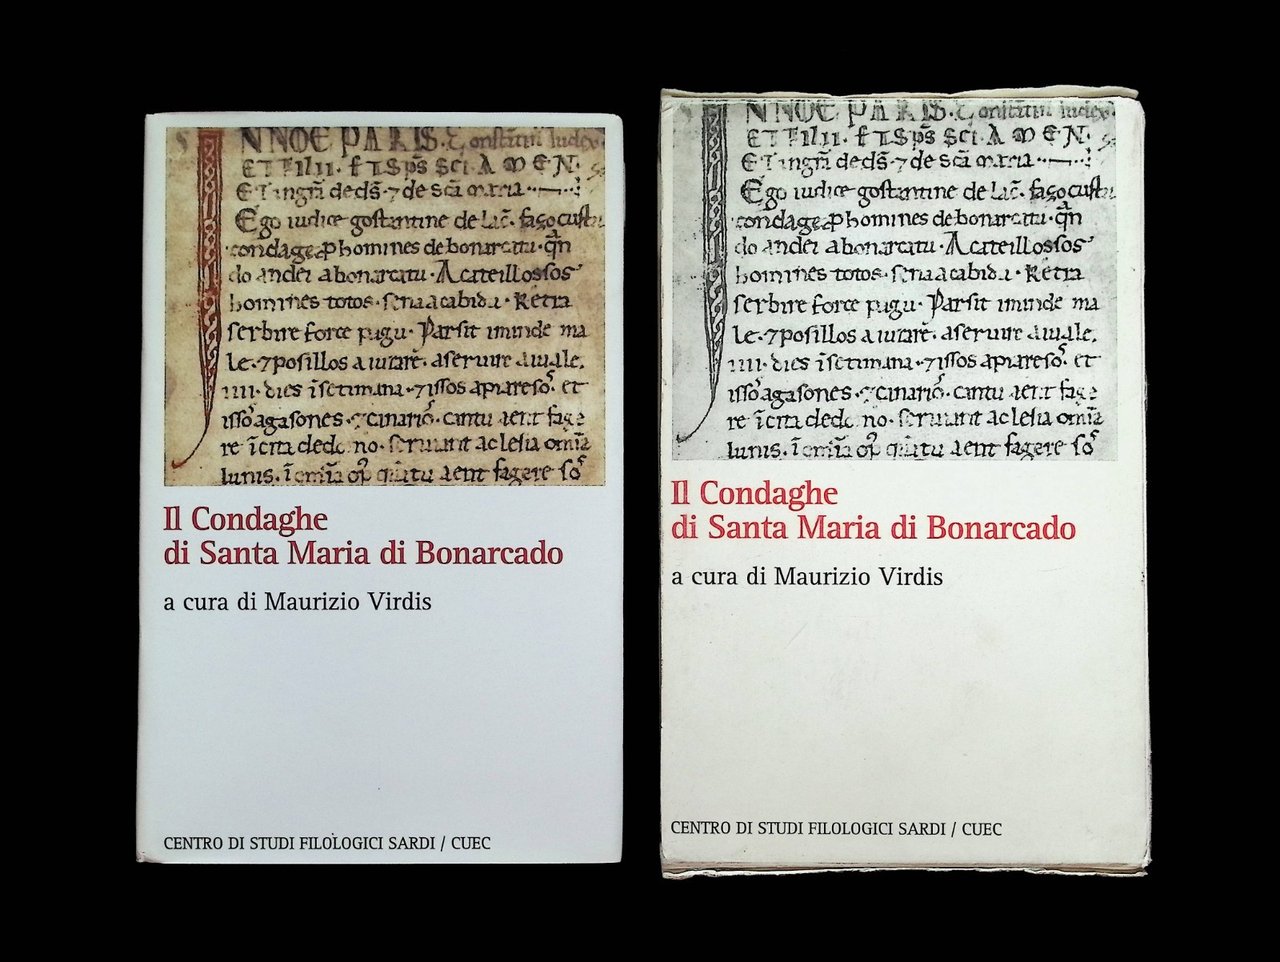 NNOE PARIS.
ET FILII. ET SP̄S SCI. AMEN.
ET in grā de dS̄ 7 de scā maria
Ego iudice gostantine de Lac̄. faço custu
condage p homines de bonarcatu. qn̄
do andei a bonarcatu. Acateillos sos
homines totos. Retra
serbire force pagu. Parsit iminde ma
le. 7 posillos a iurare. a seruire a iuale.
iiii. dies ī setimana. 7 issos apiareso. et
isso agasones. 7 cinario. cantu aent fage
re no. seruiant a clesia omīa
lunis. ī omīa op̄ aent fagere so
Il Condaghe
di Santa Maria di Bonarcado
a cura di Maurizio Virdis
CENTRO DI STUDI FILOLOGICI SARDI / CUEC
NNOE PARIS.
ET FILII. ET SP̄S SCI. AMEN.
ET in grā de dS̄ 7 de scā maria
Ego iudice gostantine de Lac̄. faço custu
condage p homines de bonarcatu. qn̄
do andei a bonarcatu. Acateillos sos
homines totos. Retra
serbire force pagu. Parsit iminde ma
le. 7 posillos a iurare. a seruire a iuale.
iiii. dies ī setimana. 7 issos apiareso. et
isso agasones. 7 cinario. cantu aent fage
re no. seruiant a clesia omīa
lunis. ī omīa op̄ aent fagere so
Il Condaghe
di Santa Maria di Bonarcado
a cura di Maurizio Virdis
CENTRO DI STUDI FILOLOGICI SARDI / CUEC